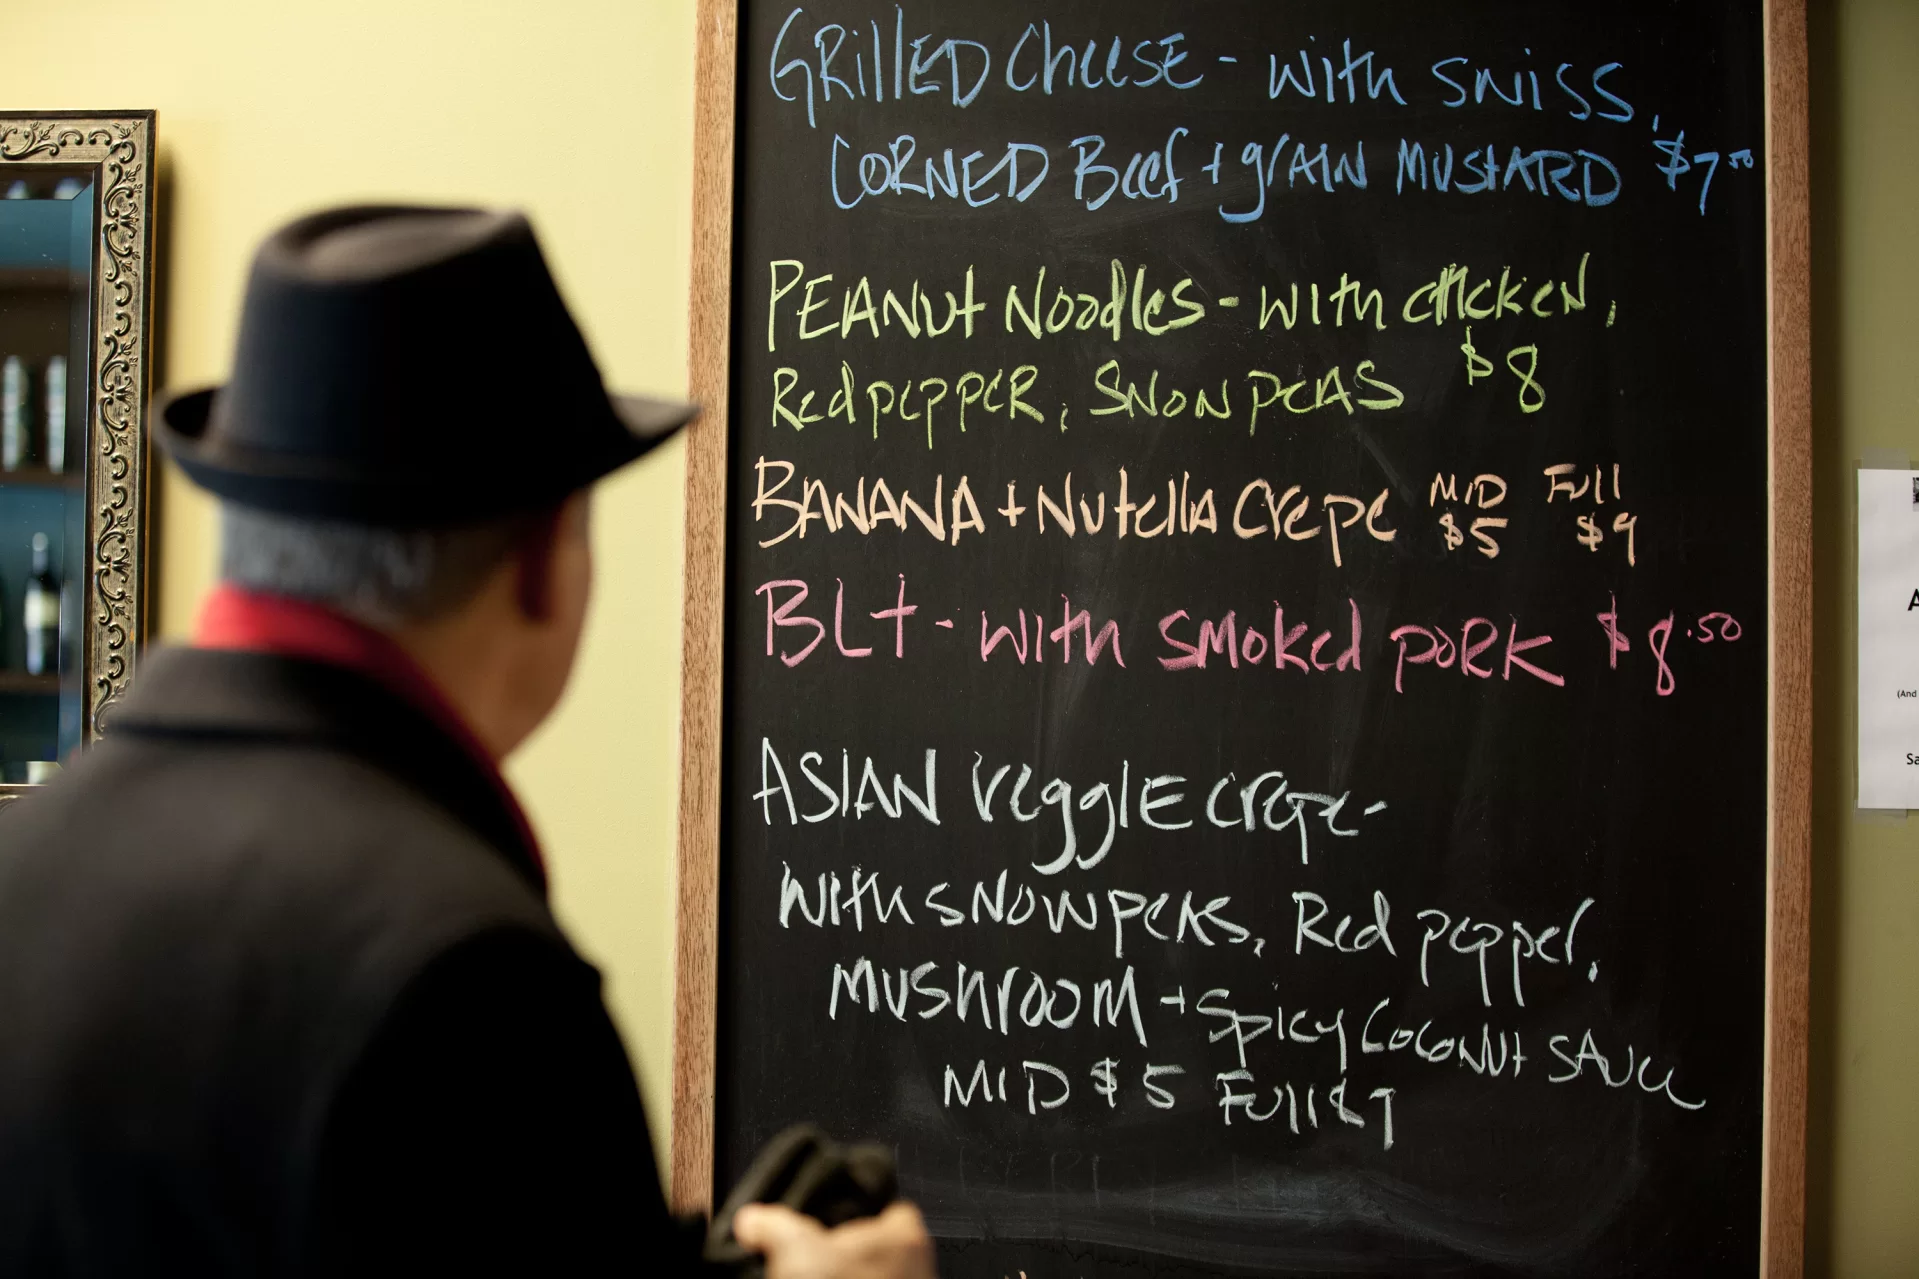 GRillED CheesE - with swiss,
CORNED Beef + grAIN MUStARD $7.50
PEANUt Noodles - with chicken,
Red pepper, SNOW peAS $8
BANANA + Nutella Crepe MID Full
$5 $9
BLt - with smoked poRK $8.50
ASIAN veggIE crepe -
with SNOW peAs, Red pepper,
MUShrOOM + Spicy COCONUt SAUce
MID $5 Full $9
A
(And
Sa